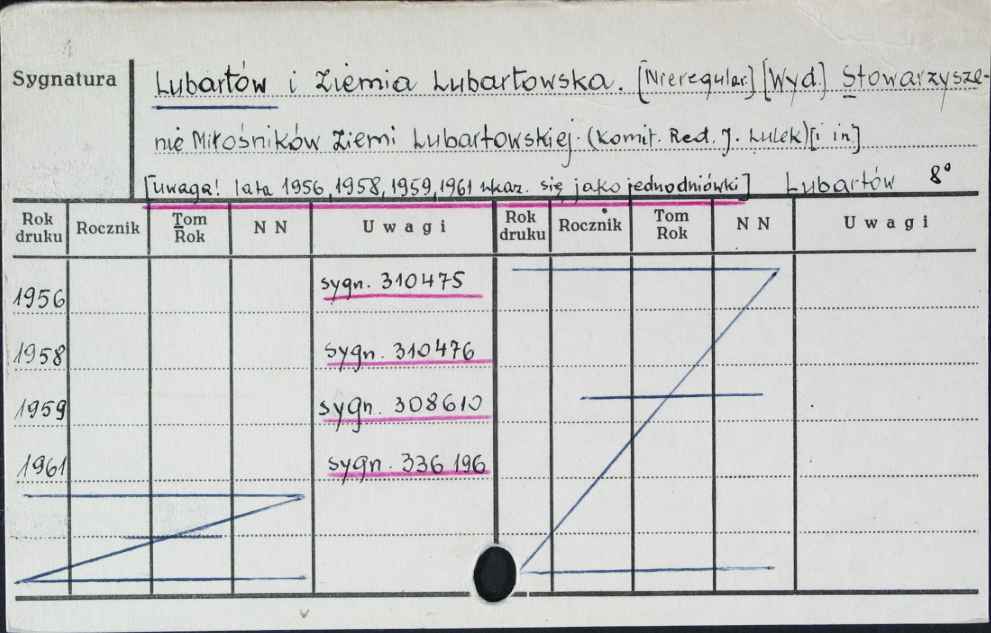 Sygnatura
Lubartów i Ziemia Lubartowska. [Nieregular.] [Wyd.] Stowarzysze-
nie Miłośników Ziemi Lubartowskiej. (Komit. Red. J. Lulek) [i in]
[Uwaga! lata 1956, 1958, 1959, 1961 ukaz. się jako jednodniówki] Lubartów 8°
Rok druku Rocznik Tom Rok NN Uwagi Rok druku Rocznik Tom Rok NN Uwagi
1956 sygn. 310475
1958 sygn. 310476
1959 sygn. 308610
1961 sygn. 336 196